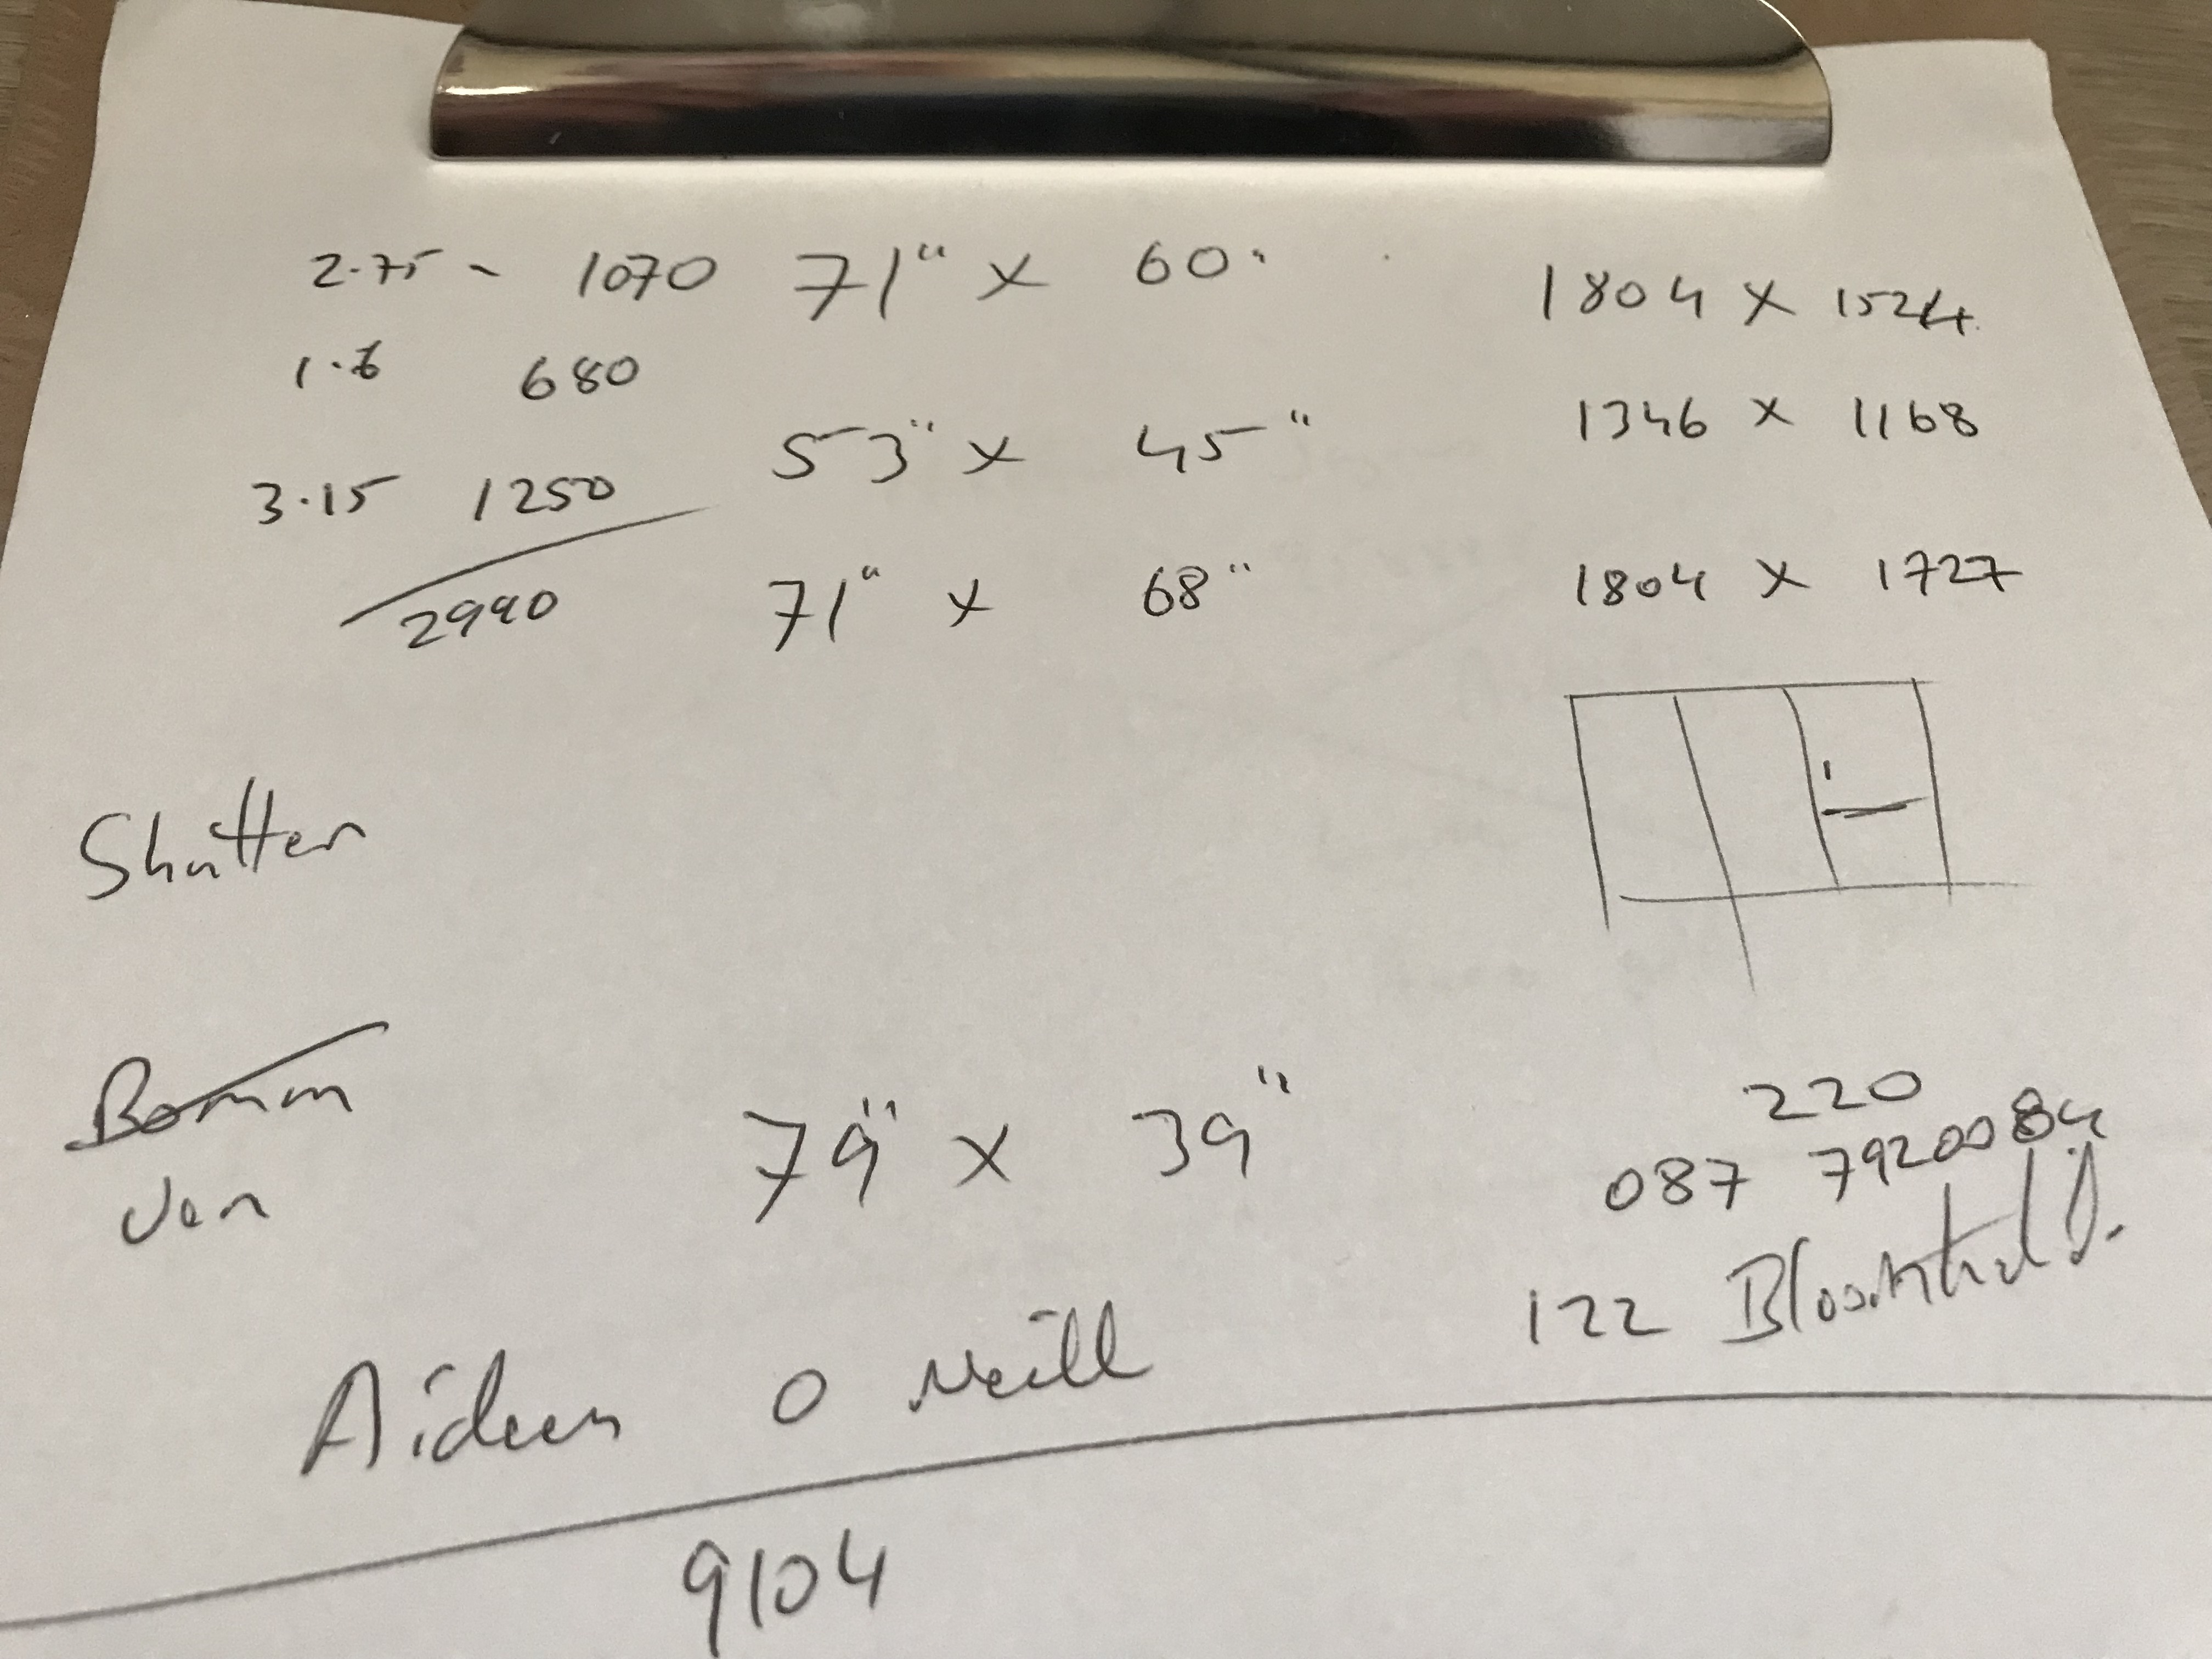 2.75 - 1070 71" x 60" 1804 x 1524
1.6 680
53" x 45" 1346 x 1168
3.15 1250
2990
71" x 68" 1804 x 1727
Shutter
220
79" x 39" 087 7920084
Ven
122
Aideen O Neill
9104